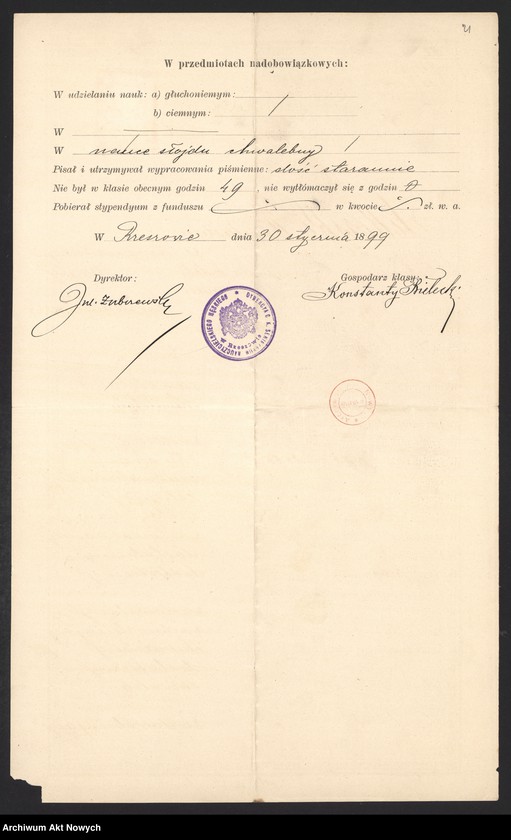 21
W przedmiotach nadobowiązkowych:
W udzielaniu nauk: a) głuchoniemym:
b) ciemnym:
W
W nauce slojdu chwalebny
Pisał i utrzymywał wypracowania piśmienne: dość starannie
Nie był w klasie obecnym godzin 49, nie wytłómaczył się z godzin 0
Pobierał stypendyum z funduszu w kwocie zł. w. a.
W Rzeszowie dnia 30 stycznia 1899
Dyrektor: Gospodarz klasy:
Konstanty
DYREKCYA C. K. SEMINARYUM NAUCZYCIELSKIEGO MĘSKIEGO
w Rzeszowie
Archiwum Akt Nowych